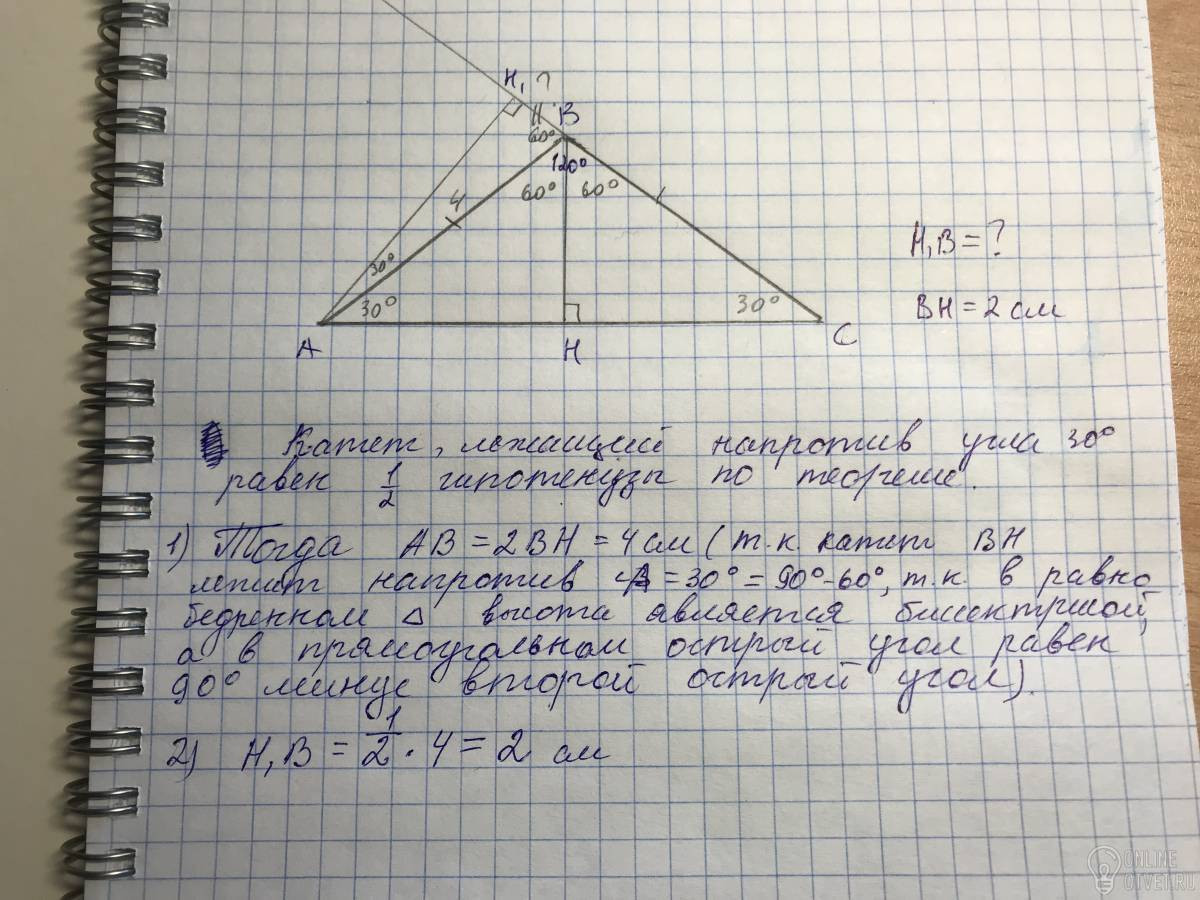 H₁ ?
B
60°
120°
60° 60°
4
30°
30°
30°
A
H
C
H₁B = ?
BH = 2 см
Катет, лежащий напротив угла 30°
равен 1/2 гипотенузы по теореме.
1) Тогда AB = 2BH = 4 см ( т.к. катет BH
лежит напротив ∠A = 30° = 90°-60°, т.к. в равно
бедренном △ высота является биссектрисой,
а в прямоугольном острый угол равен
90° минус второй острый угол).
2) H₁B = 1/2 · 4 = 2 см
ONLINE
OTVET.RU